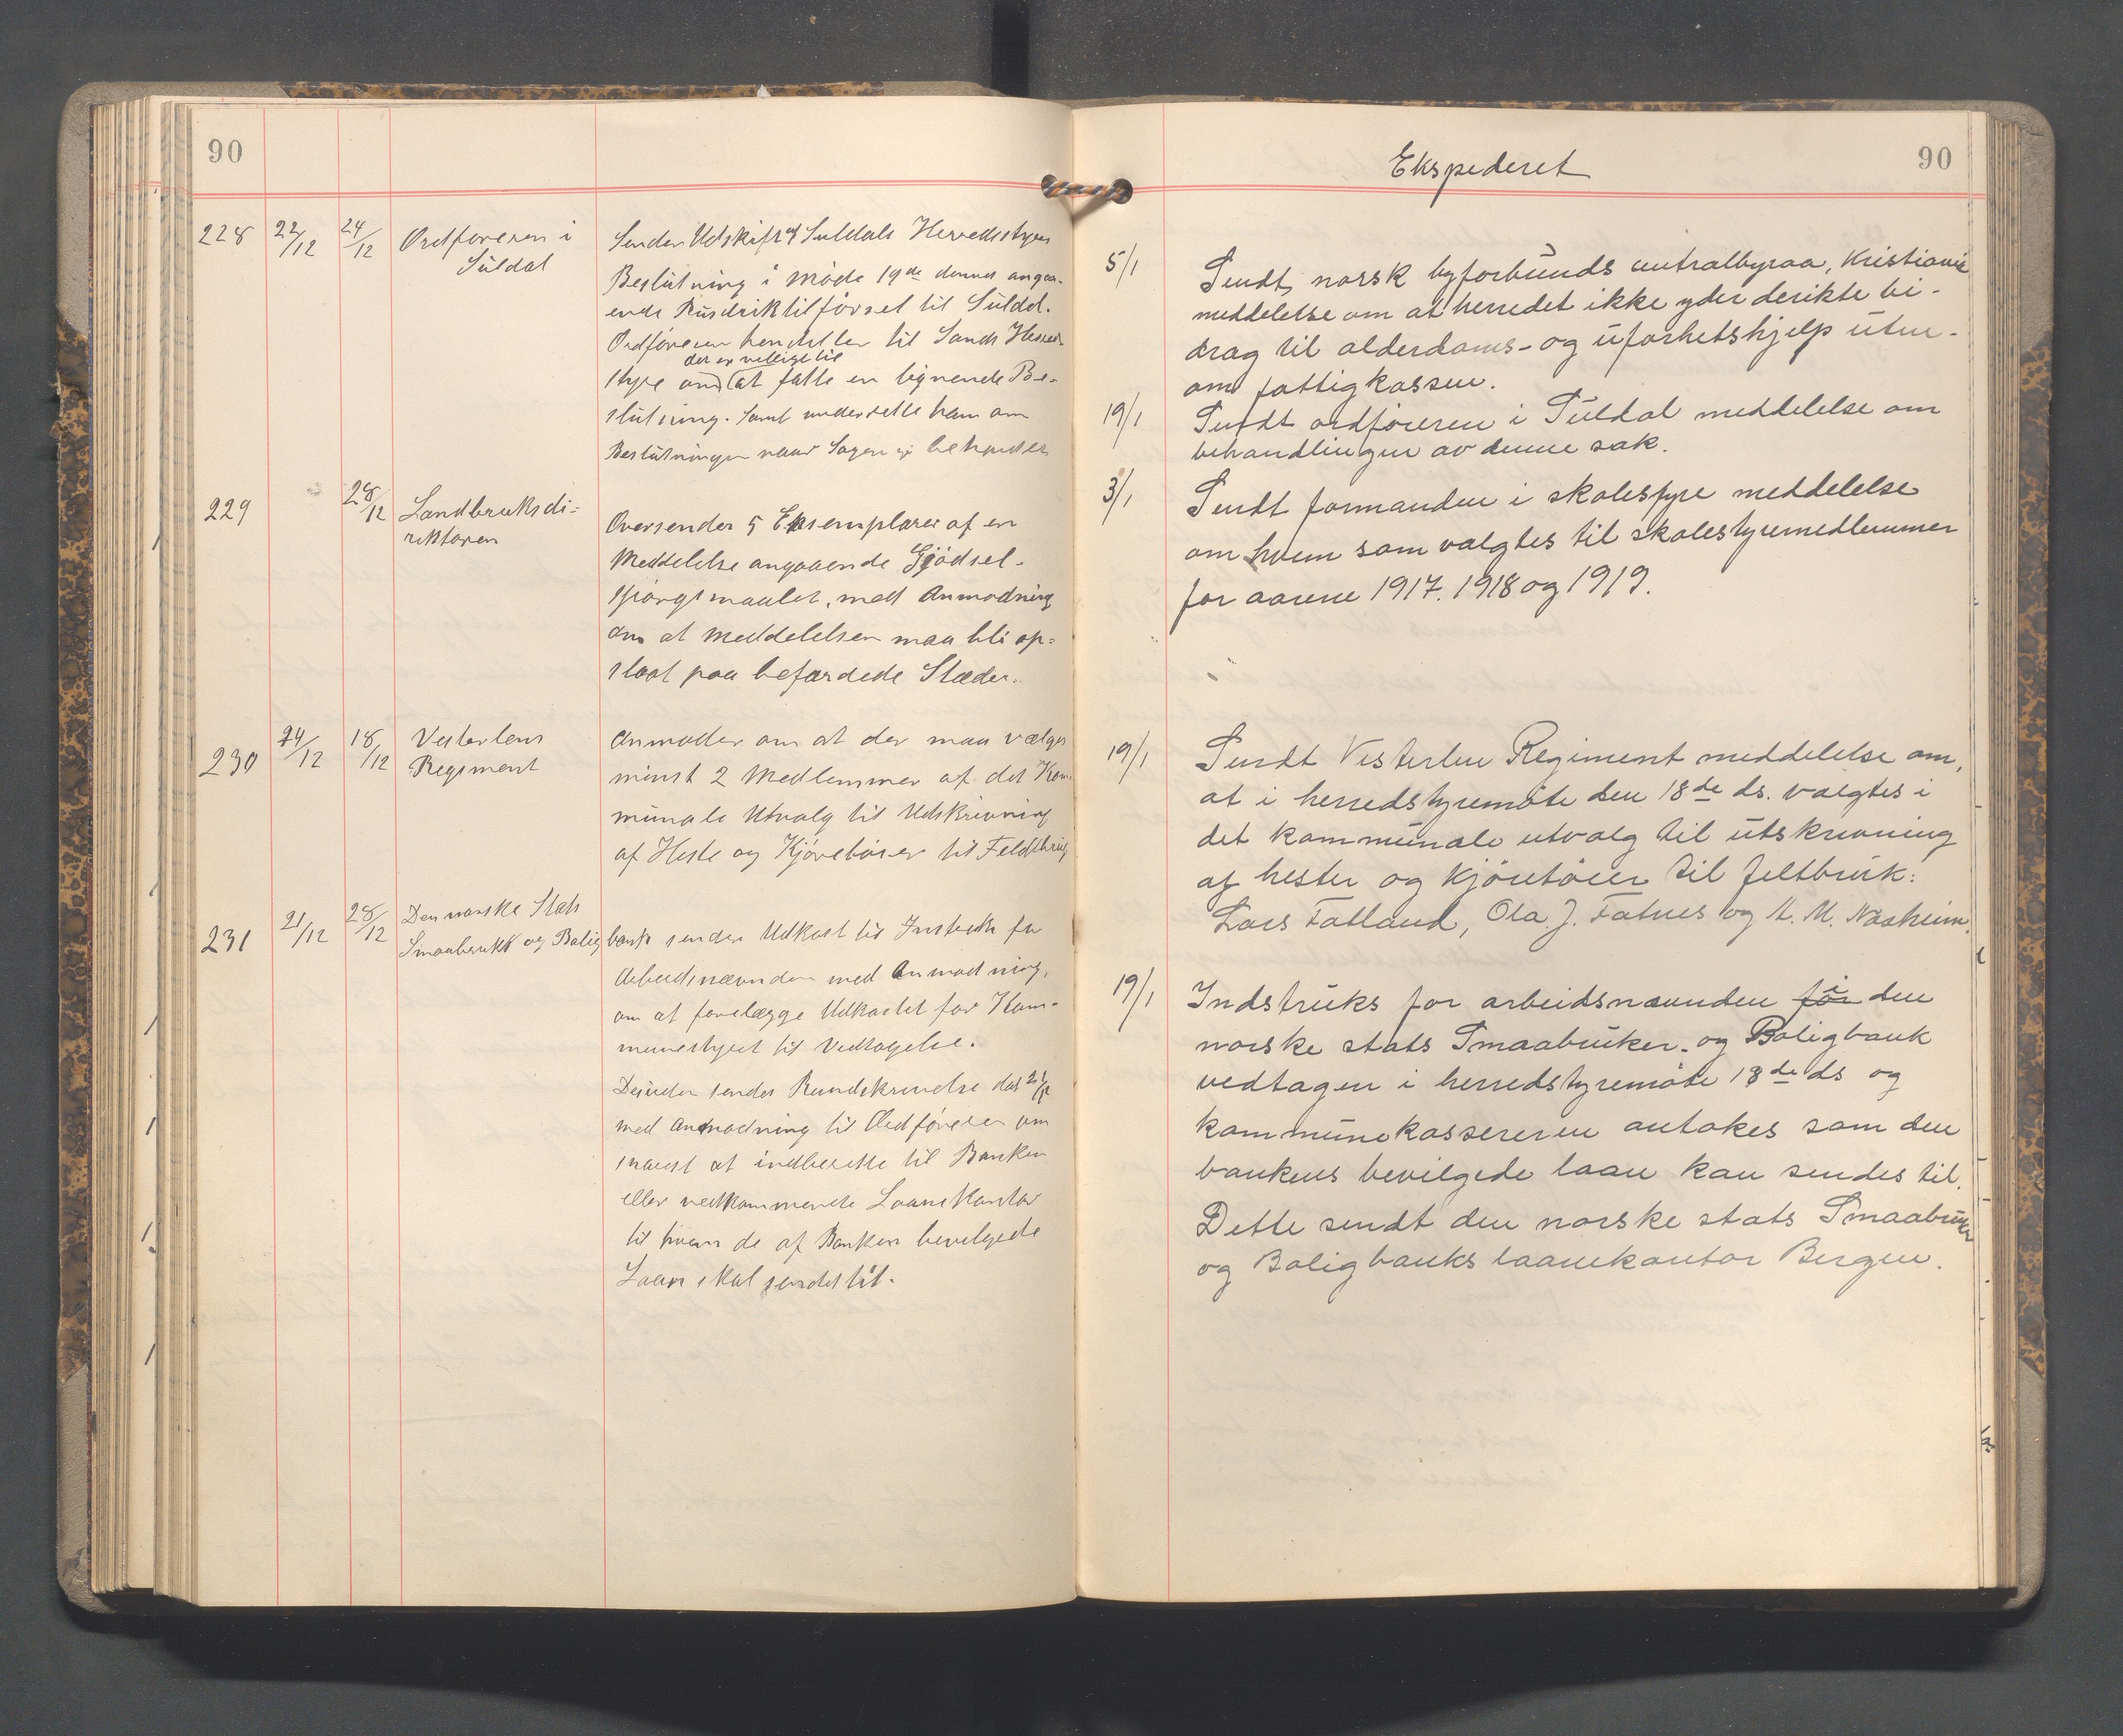 90
228 22/12 24/12 Ordføreren i Suldal
Sender Udskrift af Suldals Herredsstyres
Beslutning i Møde 19de dennes angaa-
ende Rusdriktilførsel til Suldal.
Ordføreren henstiller til Sands Herred-
der er villige til
styre om at fatte en lignende Be-
slutning. Samt underrette ham om
Beslutningen naar Sagen er behandlet
229 28/12 Landbruksdi-
rektøren
Oversender 5 Eksemplarer af en
Meddelelse angaaende Gjødsel-
spørgsmaalet, med Anmodning
om at Meddelelsen maa bli op-
slaat paa befærdede Stæder.
230 24/12 18/12 Vesterlens
Regiment
Anmoder om at der maa vælges
minst 2 Medlemmer af det Kom-
munale Utvalg til Udskrivning
af Heste og Kjøretøier til Feldtbrug
231 21/12 28/12 Den norske Stats
Smaabruks og Bolig
bank sender Udkast til Instruks for
Arbeidsnævnden med Anmodning,
om at forelægge Udkastet for Kom-
munestyret til Vedtagelse.
Desuden sendes Rundskrivelse dat 21/12
med Anmodning til Ordføreren om
snarest at indberette til Banken
eller vedkommende Laanekontor
til hvem de af Banken bevilgede
Laan skal sendes til.
Ekspederet
90
5/1 Sendt norsk byforbunds centralbyraa, Kristiania
meddelelse om at herredet ikke yder derikte bi-
drag til alderdoms- og uførhetshjelp uten-
om fattigkassen.
19/1 Sendt ordføreren i Suldal meddelelse om
behandlingen av denne sak.
3/1 Sendt formanden i skolestyre meddelelse
om hvem som valgtes til skolestyremedlemmer
for aarene 1917. 1918 og 1919.
19/1 Sendt Vesterlen Regiment meddelelse om,
at i herredstyremøte den 18de ds. valgtes i
det kommunale utvalg til utskrivning
af hester og kjøretøier til feltbruk:
Lars Fatland, Ola J. Fatnes og M. M. Nasheim.
19/1 Indstruks for arbeidsnævnden for i den
norske stats Smaabruker- og Boligbank
vedtagen i herredstyremøte 18de ds og
kommunekassereren antakes som den
bankens bevilgede laan kan sendes til.
Dette sendt den norske stats Smaabruker
og Boligbanks laanekontor Bergen.